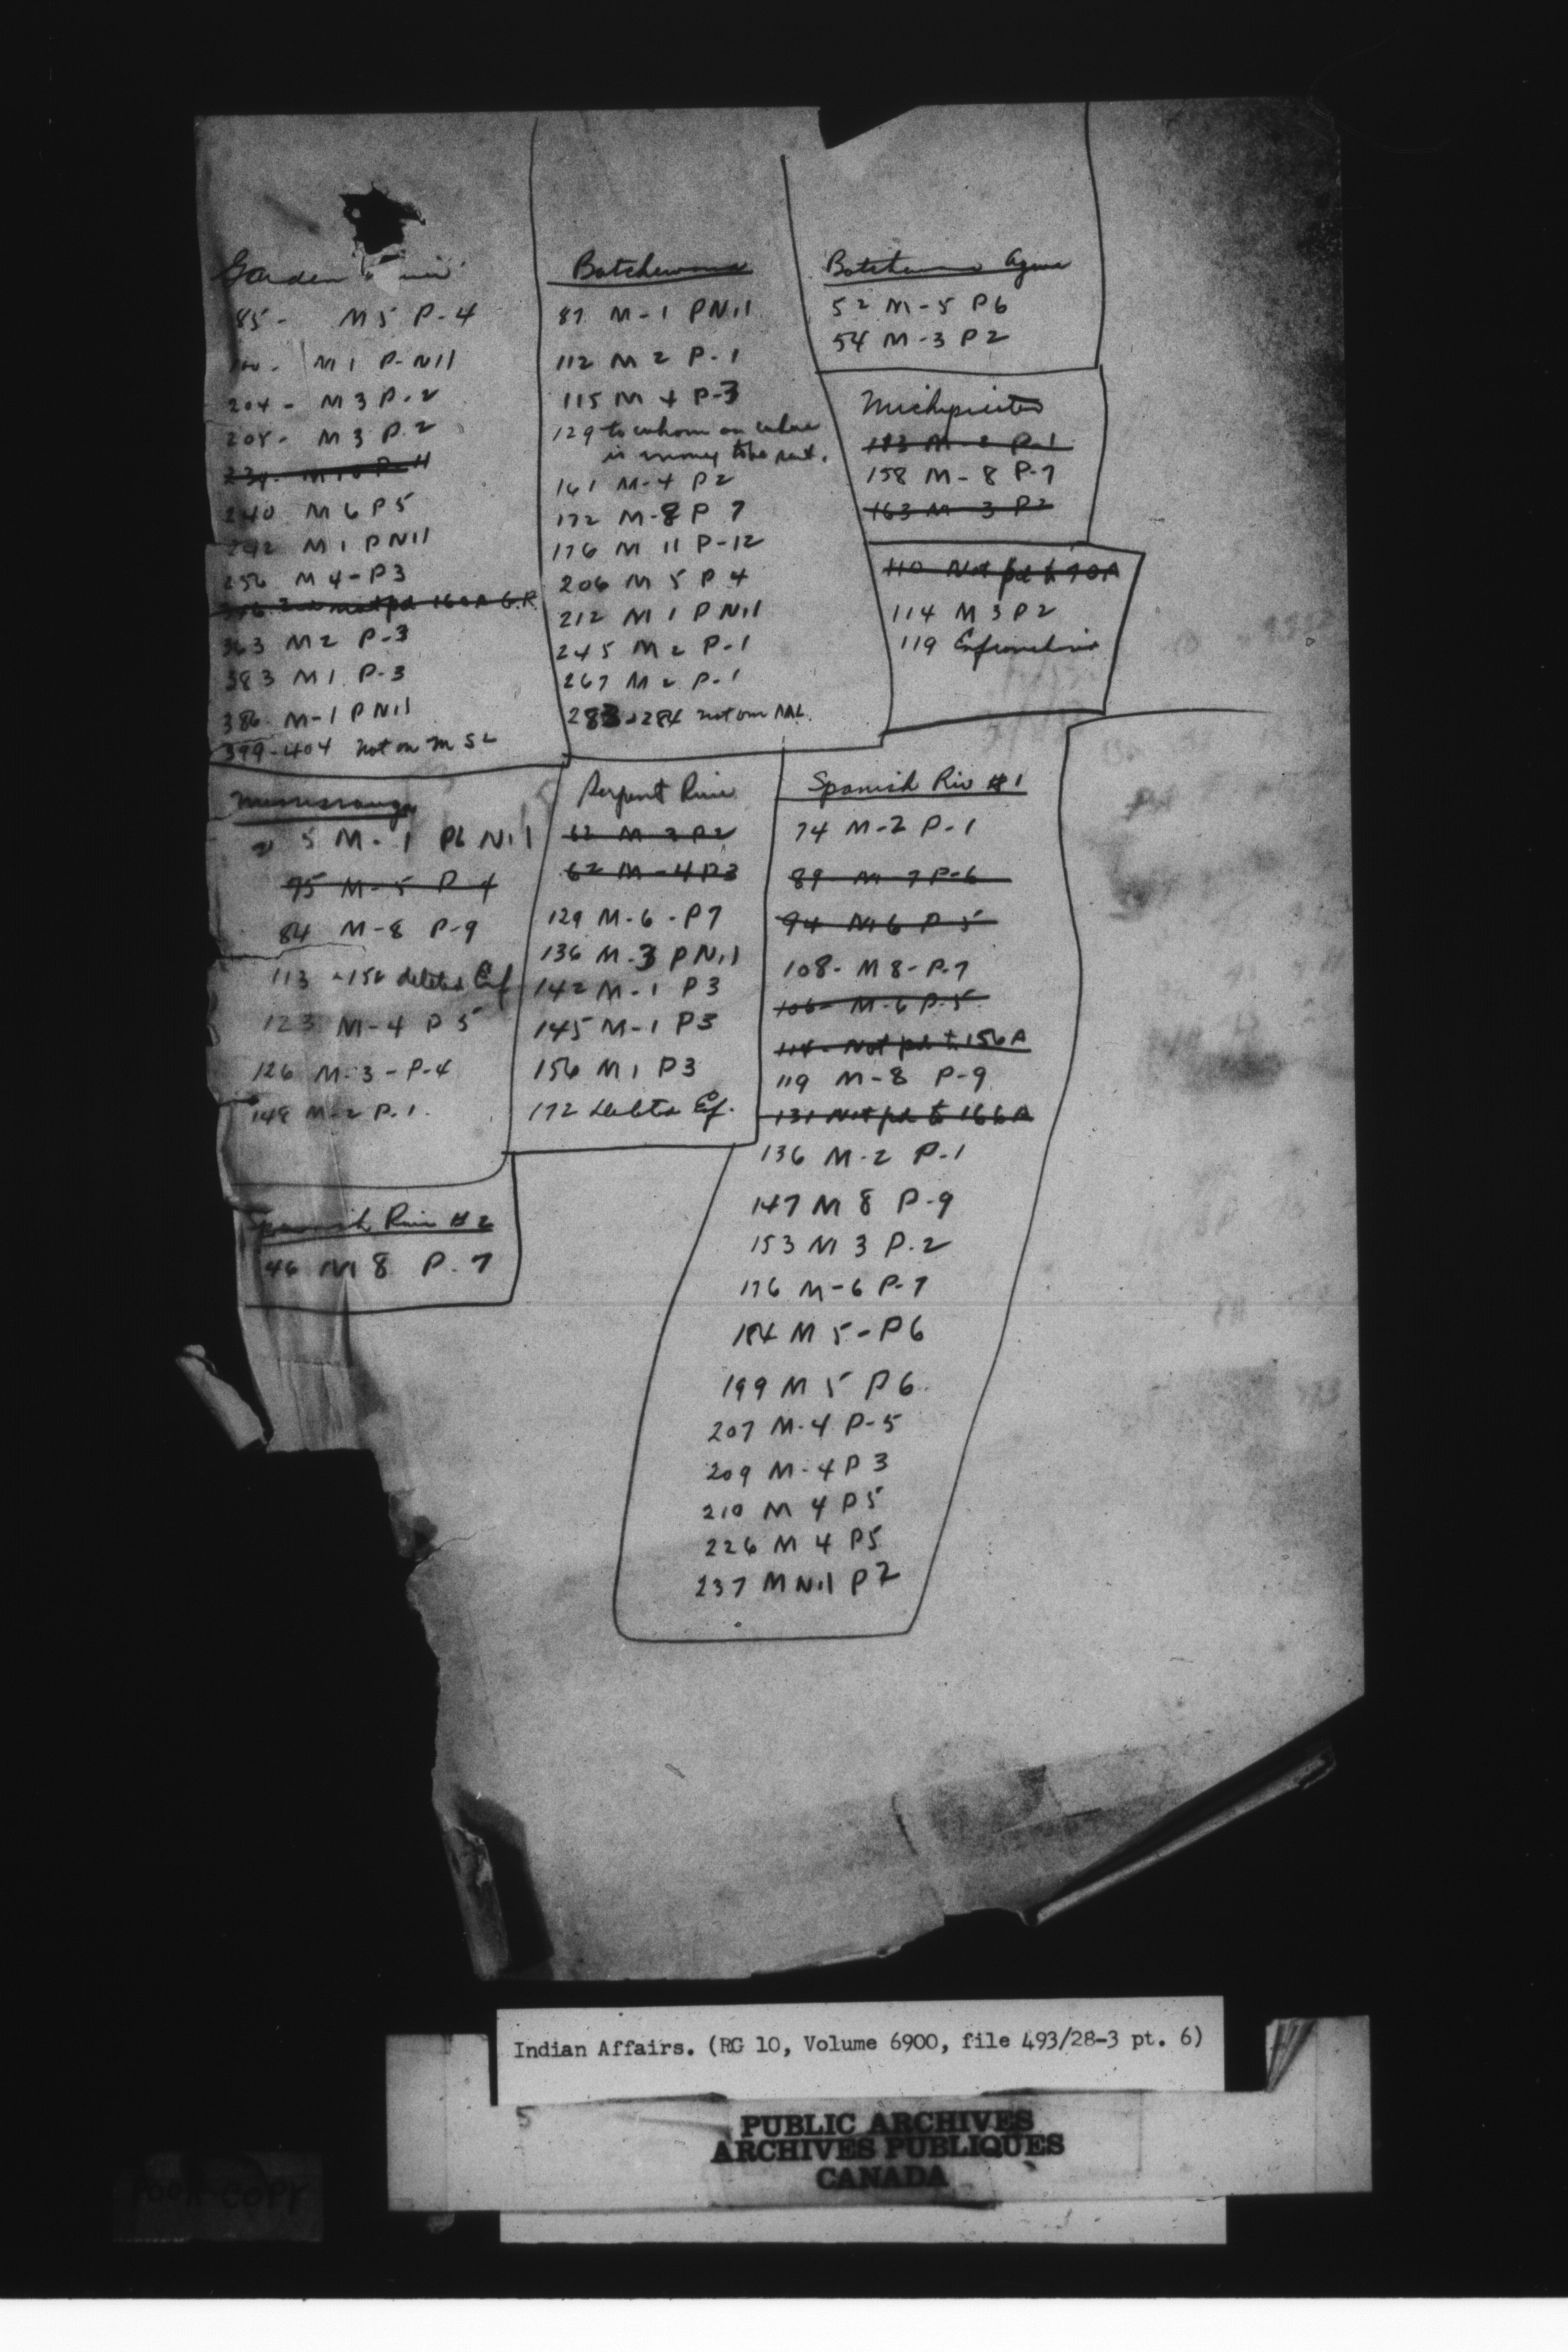 Garden
85- M5 P-4
M1 P-Nil
204- M3 P-2
208- M3 P.2
240 M6 P5
242 M1 PNil
256 M4-P3
363 M2 P-3
383 M1 P-3
386 M-1 PNil
399-404 not on
Batchewana
87 M-1 PNil
112 M2 P-1
115 M4 P-3
129 to whom or where
is money to be sent.
161 M-4 P2
172 M-8 P7
176 M11 P-12
206 M5 P4
212 M1 PNil
245 M2 P-1
267 M2 P-1
283-284 not on
Batchewana Agawa
52 M-5 P6
54 M-3 P2
Michipicoten
183 M-2 P-1
158 M-8 P-7
163 M-3 P2
110 Not pd to 70A
114 M3 P2
119
Mississauga
5 M-1 Pd Nil
75 M-5 P-4
84 M-8 P-9
113 -156 deleted Ef
123 M-4 P5
126 M-3-P-4
148 M-2 P.1.
Serpent River
62 M-3 P2
62 M-4 P3
129 M-6-P7
136 M-3 PNil
142 M-1 P3
145 M-1 P3
156 M1 P3
172 Ef.
Spanish Riv #1
74 M-2 P-1
89 M-7 P-6
94 M6 P-5
108- M8-P-7
106- M-6 P-5
114- Not pd to 156A
119 M-8 P-9
131 Not pd to 166A
136 M-2 P-1
147 M8 P-9
153 M3 P-2
176 M-6 P-7
184 M5-P6
199 M5 P6
207 M-4 P-5
209 M-4 P3
210 M4 P5
226 M4 P5
237 MNil P2
Spanish River #2
46 M8 P-7
Indian Affairs. (RG 10, Volume 6900, file 493/28-3 pt. 6)
5
PUBLIC ARCHIVES
ARCHIVES PUBLIQUES
CANADA
POOR COPY